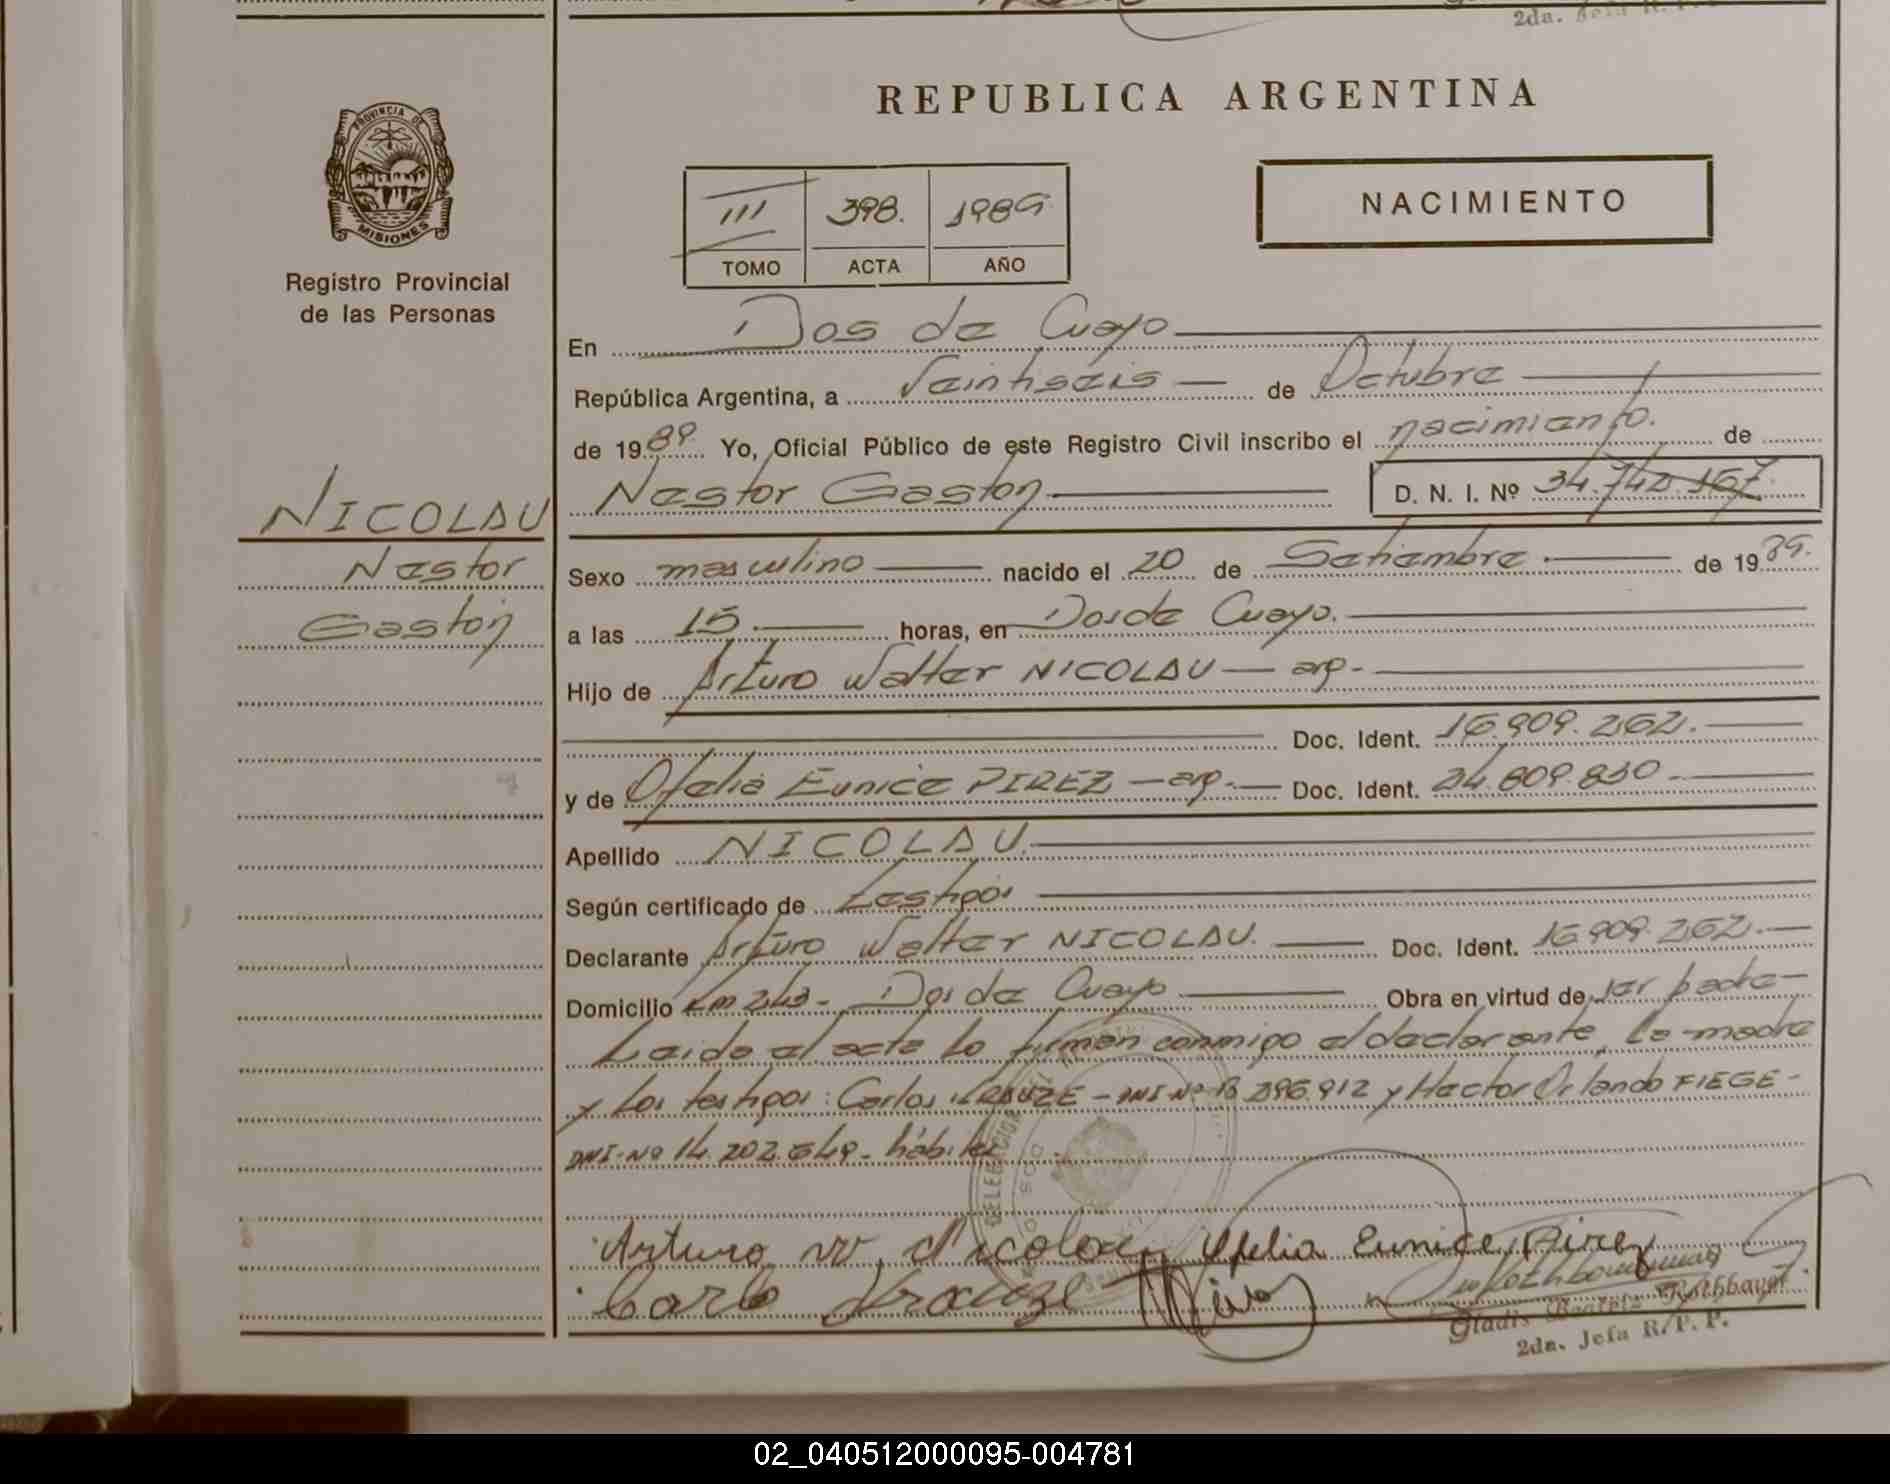 2da. Jefa R.P.P.
REPUBLICA ARGENTINA
PROVINCIA DE
MISIONES
Registro Provincial
de las Personas
III 398. 1989
TOMO ACTA AÑO
NACIMIENTO
En Dos de Cuayo
República Argentina, a Veintiseis de Octubre
de 1989 Yo, Oficial Público de este Registro Civil inscribo el nacimiento. de
Nestor Gaston D. N. I. Nº 34.740.167
NICOLAU
Nestor
Gaston
Sexo masculino nacido el 20 de Setiembre de 1989.
a las 15 horas, en Dos de Cuayo.
Hijo de Arturo Walter NICOLAU - arg-
Doc. Ident. 16.909.262.
y de Ofelia Eunice PIREZ - arg. Doc. Ident. 24.809.830
Apellido NICOLAU.
Según certificado de testigos
Declarante Arturo Walter NICOLAU. Doc. Ident. 16.909.262.
Domicilio Km 243- Dos de Cuayo Obra en virtud de ser padre-
Leida el acta lo firman conmigo el declarante, la madre
y los testigos: Carlos KRAUZE - DNI-Nº 13.396.912 y Hector Orlando FIEGE-
DNI-Nº 14.202.649- hábiles
DELEGACION
Arturo W. Nicolau Ofelia Eunice Pirez
Carlo Krauze
Gladis Beatriz Rothbauer
2da. Jefa R.P.P.
02_040512000095-004781